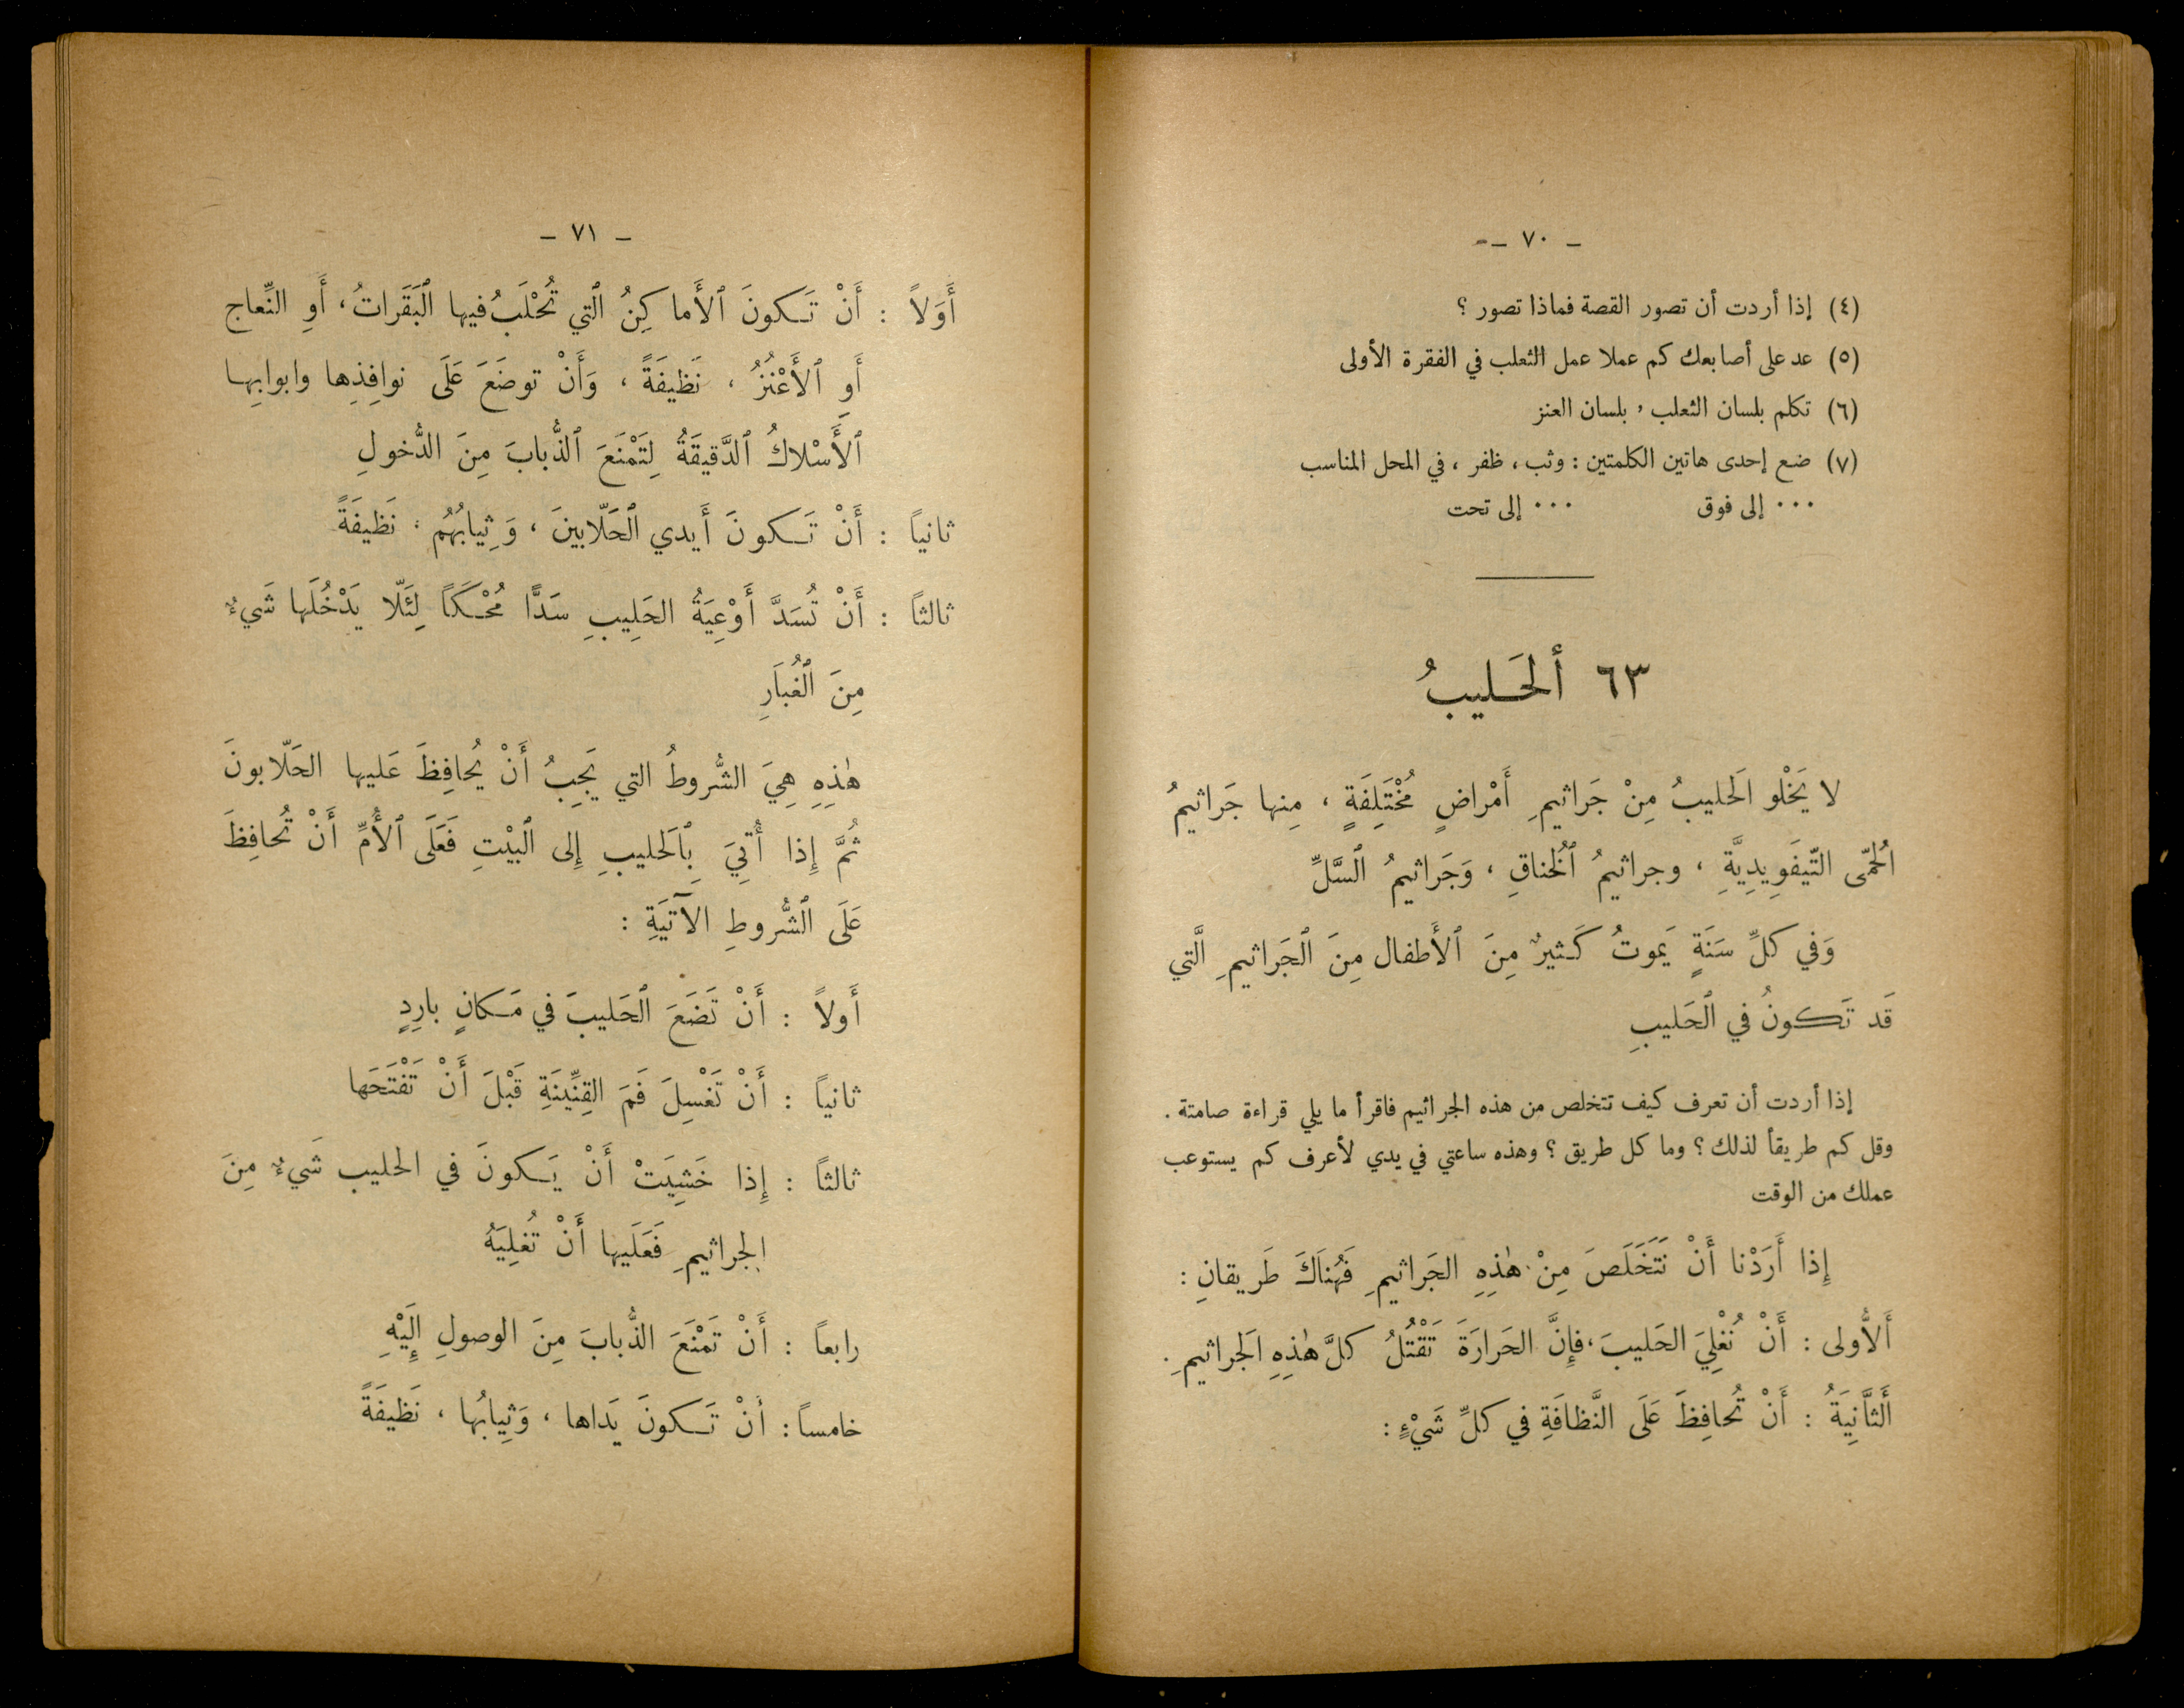 — ٧٠ —
(٤) إذا أردت أن تصور القصة فماذا تصور ؟
(٥) عد على أصابعك كم عملا عمل الثعلب في الفقرة الأولى
(٦) تكلم بلسان الثعلب ، بلسان العنز
(٧) ضع إحدى هاتين الكلمتين : وثب ، ظفر ، في المحل المناسب
٠٠٠ إلى فوق ٠٠٠ إلى تحت
٦٣ ألحَليبُ
لا يَخْلو اَلحليبُ مِنْ جَراثيمِ أَمْراضٍ مُخْتَلِفَةٍ ، مِنها جَراثيمُ
الُحمّى التّيفَوِيدِيَّةِ ، وجراثيمُ ٱلخُناقِ ، وَجَراثيمُ ٱلسَّلِّ
وَفي كلِّ سَنَةٍ يَموتُ كَثيرٌ مِنَ ٱلأَطفال مِنَ ٱلجَراثيمِ الَّتي
قَد تَكونُ في ٱلحَليبِ
إذا أردت أن تعرف كيف تتخلص من هذه الجراثيم فاقرأ ما يلي قراءة صامتة .
وقل كم طريقاً لذلك ؟ وما كل طريق ؟ وهذه ساعتي في يدي لأعرف كم يستوعب
عملك من الوقت
إِذا أَرَدْنا أَنْ نَتَخَلَصَ مِنْ هٰذِهِ الجَراثيمِ فَهُناَكَ طَريقانِ :
أَلأُولى : أَنْ نُغْلِيَ الحَليبَ ، فإِنَّ الحَرارَةَ تَقْتُلُ كلَّ هٰذِهِ اَلجراثيمِ .
أَلثَّانِيَةُ : أَنْ نُحافِظَ عَلَى النَّظافَةِ في كلِّ شَيْءٍ :
— ٧١ —
أَوَلاً : أَنْ تَـكونَ ٱلأَماكِنُ ٱلتي تُحْلَبُ فيها ٱلبَقَراتُ ، أَوِ النِّعاج
أَوِ ٱلأَعْنُزُ ، نَظيفَةً ، وَأَنْ توضَعَ عَلَى نوافِذِها وابوابِها
ٱلأَسْلاكُ ٱلدَّقيقَةُ لِتَمْنَعَ ٱلذُّبابَ مِنَ الدُّخولِ
ثانياً : أَنْ تَـكونَ أَيدي ٱلحَلّابينَ ، وَثِيابُهُم ، نَظيفَةً
ثالثاً : أَنْ تُسَدَّ أَوْعِيَةُ الحَلِيبِ سَدًّا مُحْـكَمًا لِئَلّا يَدْخُلَها شَيءٌ
مِنَ ٱلغُبَارِ
هٰذِهِ هِيَ الشُّروطُ التي يَجِبُ أَنْ يُحافِظَ عَليها الحَلّابونَ
ثُمَّ إِذا أُتِيَ بِٱلحَليبِ إِلى ٱلبَيْتِ فَعَلَى ٱلأُمِّ أَنْ تُحافِظَ
عَلَى ٱلشُّروطِ الآتيَةِ :
أَولاً : أَنْ تَضَعَ ٱلحَليبَ في مَـكانٍ بارِدٍ
ثانياً : أَنْ تَغْسِلَ فَمَ القِنِّينَةِ قَبْلَ أَنْ تَفْتَحَها
ثالثاً : إِذا خَشِيَتْ أَنْ يَـكونَ في الحليب شَيءٌ مِنَ
الجراثيمِ فَعَلَيها أَنْ تُغلِيَهُ
رابعاً : أَنْ تَمْنَعَ الذُّبابَ مِنَ الوصولِ إِلَيْهِ
خامساً : أنْ تَـكونَ يَداها ، وَثِيابُها ، نَظيفَةً